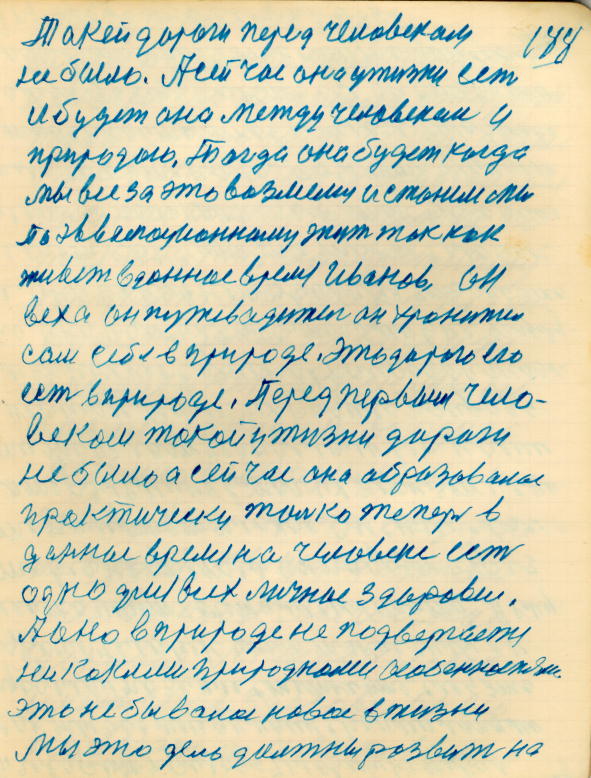 Такей дороги перед человекам 188
не было. А сейчас она у жизни ест
и будет она между человекам и
природою. Тагда она будет когда
мы все за это возмемси и станим мы
по эвалюционному жит так как
живет в данное время Иванов, он
веха он путевадител он хранител
сам себе в природе. Это дарога его
ест в природе. Перед первым чело-
веком такой у жизни дароги
не было а сейчас она образовалас
практически толко теперь в
данное время на человеке ест
одно для всех личное здоровие.
А оно в природе не подвергаетси
никакими природными особенностями.
это небывалое новое в жизни
Мы это дело должны развит на